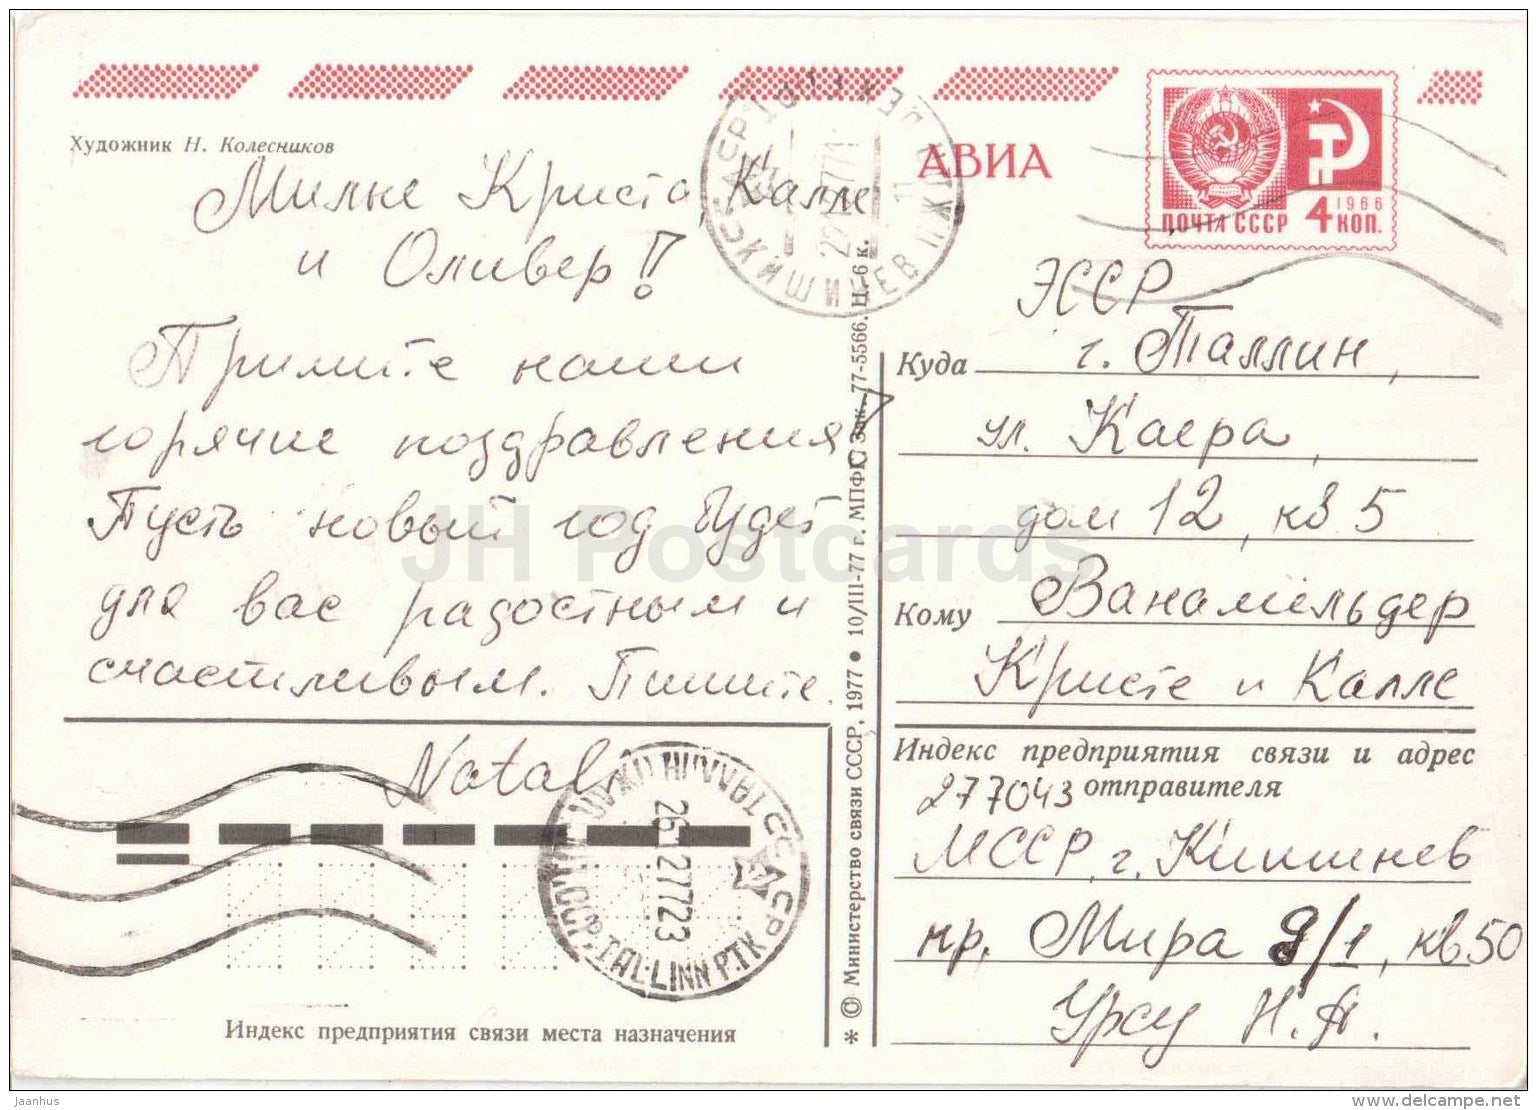 Художник Н. Колесников
АВИА
1966
ПОЧТА СССР 4 КОП.
Милые Криста, Калле
и Оливер!
Примите наши
горячие поздравления
Пусть новый год будет
для вас радостным и
счастливым. Пишите.
Natali
26 12 77 23
TALLINN P.TK
Индекс предприятия связи места назначения
* © Министерство связи СССР, 1977 • 10/III-77 г. МПФГ. Зак. 77-5566. Ц. 6 к.
ЭССР
Куда г. Таллин,
ул. Каера,
дом 12, кв 5
Кому Ванамельдер
Кристе и Калле
Индекс предприятия связи и адрес
277043 отправителя
МССР, г. Кишинев
пр. Мира 9/1, кв 50
Урсу Н. А.
JH Postcards
jaanhus
delcampe.net